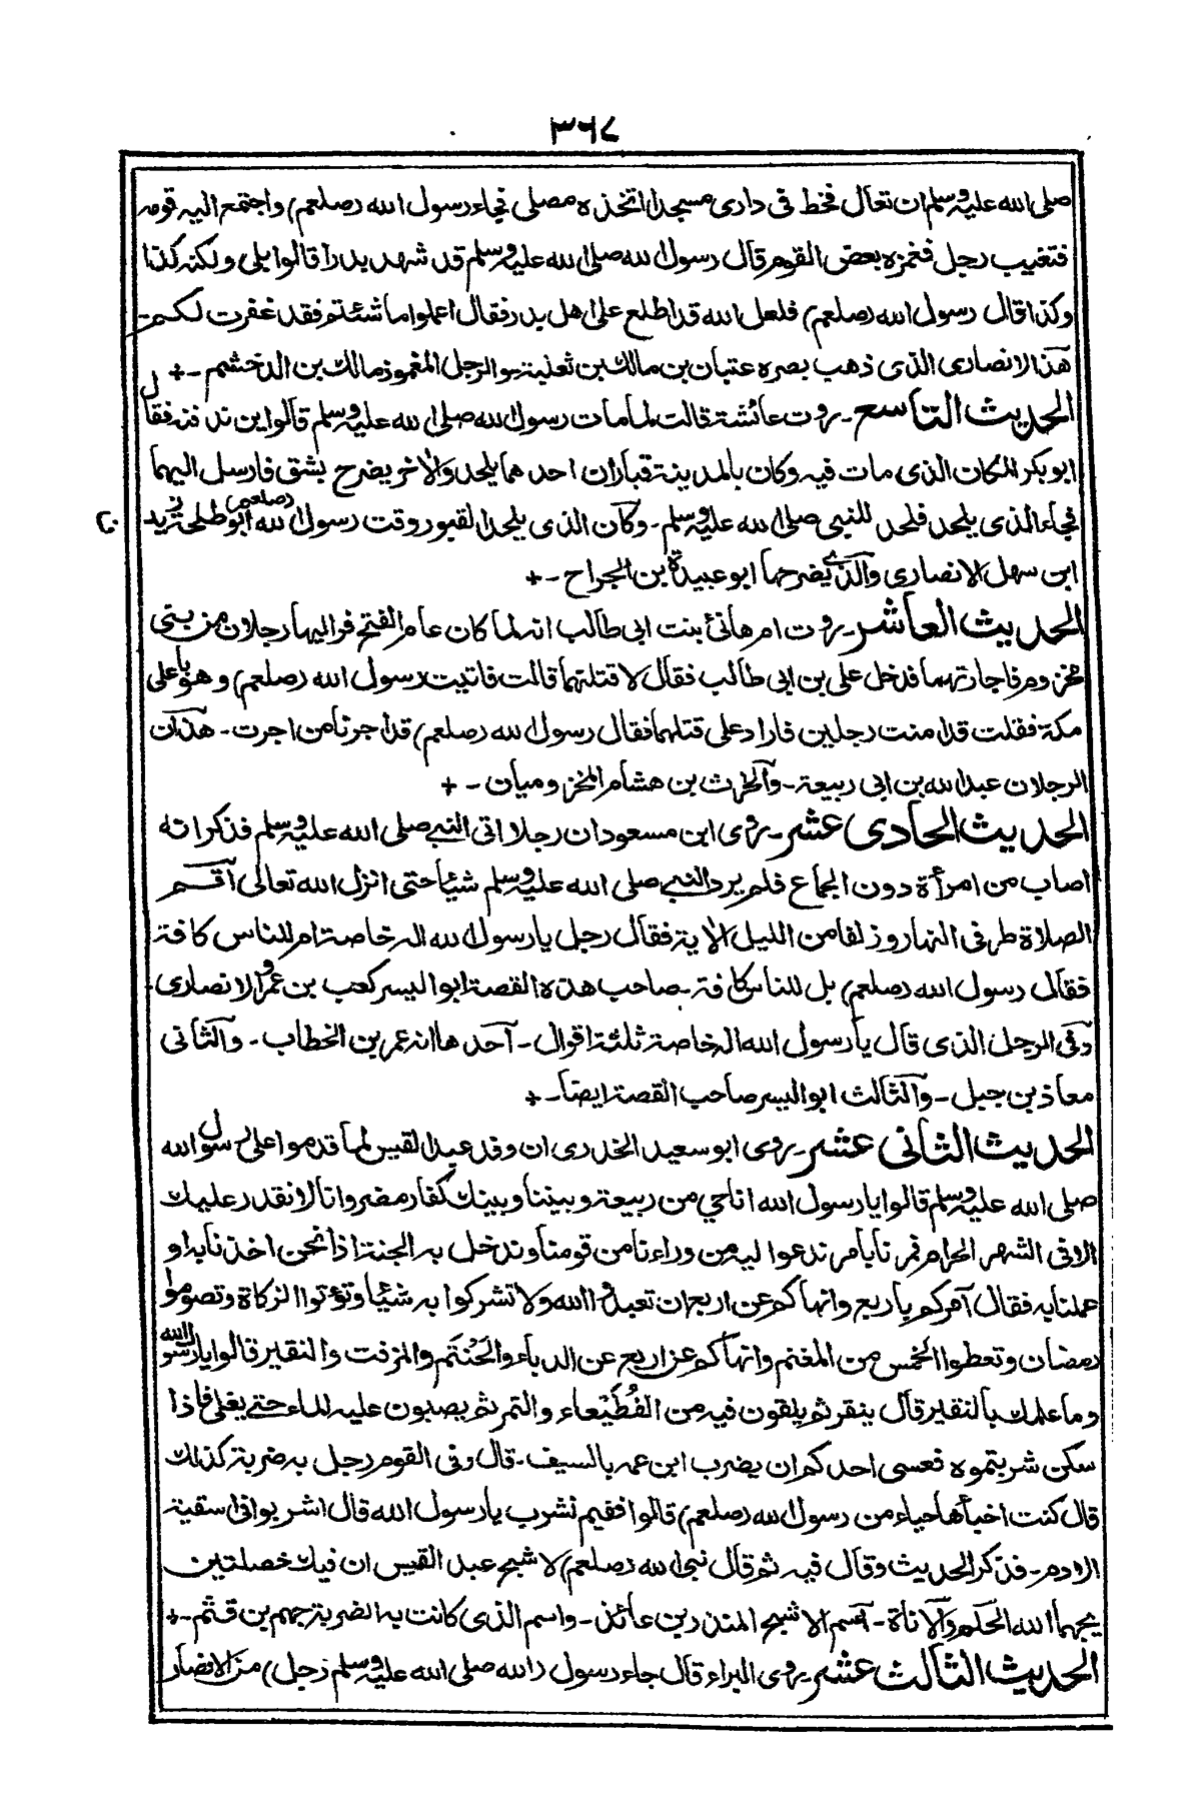 ٣٦٧
صلى الله عليه وسلم ان تعال فخط فى دارى مسجدا اتخذه مصلى فجاء رسول الله (صلعم) واجتمع اليه قومه
فتغيب رجل فغمزه بعض القوم قال رسول الله صلى الله عليه وسلم قد شهد بدرا قالوا بلى ولكنه كذا
وكذا قال رسول الله (صلعم) فلعل الله قد اطلع على اهل بدر فقال اعملوا ما شئتم فقد غفرت لكم
هذا الانصارى الذى ذهب بصره عتبان بن مالك بن ثعلبة والرجل المغموز مالك بن الدخشم -+
الحديث التاسع - روت عائشة قالت لما مات رسول الله صلى الله عليه وسلم قالوا اين ندفنه فقال
ابو بكر المكان الذى مات فيه وكان بالمدينة قباران احدهما يلحد والاخر يضرح بشق فارسل اليهما
فجاء الذى يلحد فلحد للنبى صلى الله عليه وسلم - وكان الذى يلحد القبور وقت رسول الله (صلعم) ابو طلحة زيد
٢٠
ابن سهل الانصارى والذى يضرحها ابو عبيدة بن الجراح -+
الحديث العاشر - روت ام هانئ بنت ابى طالب انه لما كان عام الفتح فر اليها رجلان من بنى
مخزوم فاجارتهما فدخل على بن ابى طالب فقال لاقتلتهما قالت فاتيت رسول الله (صلعم) وهو باعلى
مكة فقلت قد امنت رجلين فاراد على قتلهما فقال رسول الله (صلعم) قد اجرنا من اجرت - هذان
الرجلان عبد الله بن ابى ربيعة - والحرث بن هشام المخزوميان -+
الحديث الحادى عشر - روى ابن مسعود ان رجلا اتى النبى صلى الله عليه وسلم فذكر انه
اصاب من امرأة دون الجماع فلم يرد النبى صلى الله عليه وسلم شيأ حتى انزل الله تعالى اقم
الصلاة طرفى النهار وزلفا من الليل الاية فقال رجل يا رسول الله اله خاصة ام للناس كافة
فقال رسول الله (صلعم) بل للناس كافة - صاحب هذه القصة ابو اليسر كعب بن عمرو الانصارى -
وفى الرجل الذى قال يا رسول الله اله خاصة ثلثة اقوال - احدها انه عمر بن الخطاب - والثانى
معاذ بن جبل - والثالث ابو اليسر صاحب القصة ايضا -+
الحديث الثانى عشر - روى ابو سعيد الخدرى ان وفد عبد القيس لما قدموا على رسول الله
صلى الله عليه وسلم قالوا يا رسول الله انا حي من ربيعة وبيننا وبينك كفار مضر وانا لا نقدر عليك
الا فى الشهر الحرام فمرنا بامر ندعوا اليه من وراءنا من قومنا وندخل به الجنة اذا نحن اخذنا به او
عملنا به فقال آمركم باربع وانهاكم عن اربع ان تعبدوا الله ولا تشركوا به شيئا وتؤتوا الزكاة وتصوموا
رمضان وتعطوا الخمس من المغنم وانهاكم عن اربع عن الدباء والحَنْتَم والمزفت والنقير قالوا يا رسول الله
وما علمك بالنقير قال ينقر ثم يلقون فيه من القُطَيْعاء والتمر ثم يصبون عليه الماء حتى يغلى فاذا
سكن شربتموه فعسى احدكم ان يضرب ابن عمه بالسيف - قال وفى القوم رجل به ضربة كذلك
قال كنت اخبأها حياء من رسول الله (صلعم) قالوا ففيم نشرب يا رسول الله قال اشربوا فى اسقية
الادم - فذكر الحديث وقال فيه ثم قال نبى الله (صلعم) لاشج عبد القيس ان فيك خصلتين
يحبهما الله الحلم والاناة - اسم الاشج المنذر بن عائذ - واسم الذى كانت به الضربة جهم بن قثم -+
الحديث الثالث عشر - روى البراء قال جاء رسول (الله صلى الله عليه وسلم رجل) من الانصار